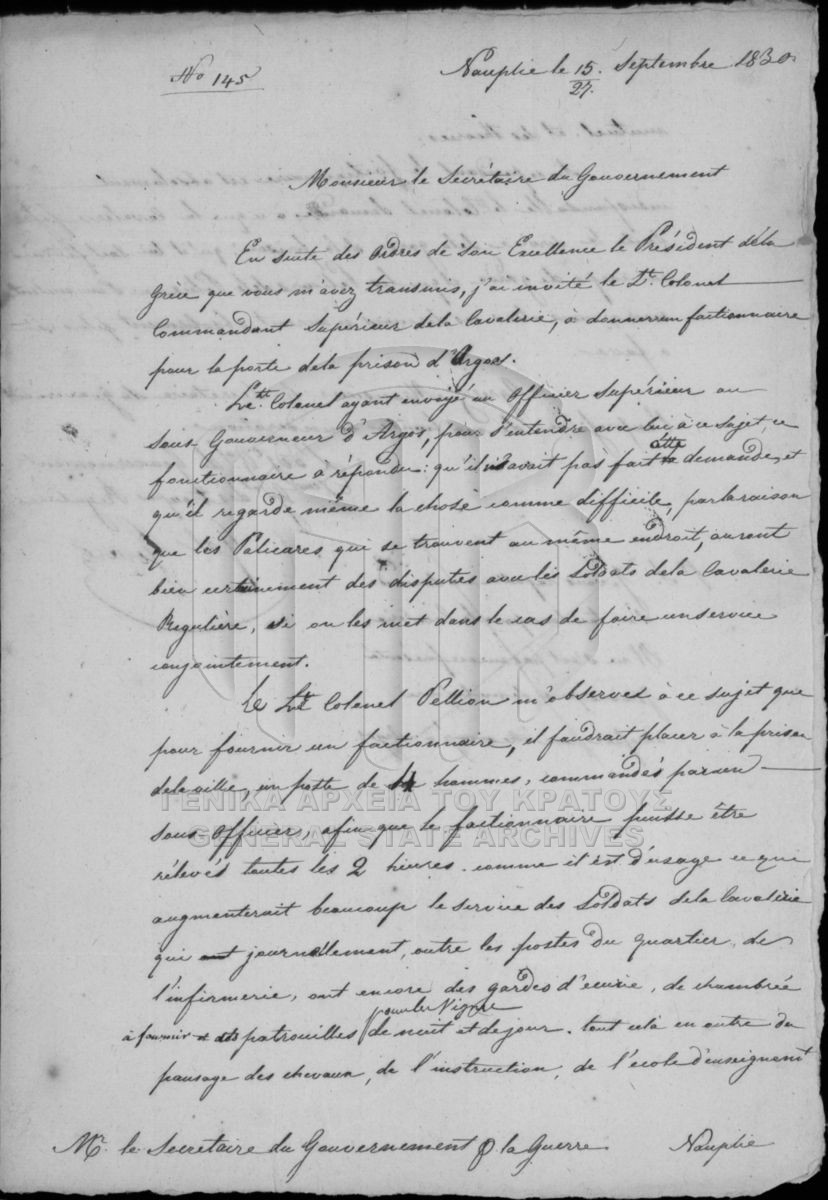 No 145
Nauplie le 15/27. Septembre 1830
Monsieur le Secrétaire du Gouvernement
En suite des Ordres de Son Excellence le Président dela
Grèce que vous m'avez transmis, j'ai invité le Lt. Colonel
Commandant Supérieur dela Cavalerie, à donner un factionnaire
pour la porte dela prison d'Argos.
Le Lt. Colonel ayant envoyé un Officier Supérieur au
Sous Gouverneur d'Argos, pour s'entendre avec lui à ce sujet, ce
fonctionnaire à répondu: qu'il n'avait pas fait cette demande, et
qu'il regarde même la chose comme difficile, par la raison
que les Palicares qui se trouvent au même endroit, auront
bien certainement des disputes avec les Soldats dela Cavalerie
Regulière, si on les met dans le cas de faire un service
conjointement.
Le Lt. Colonel Pellion m'observes à ce sujet que
pour fournir un factionnaire, il faudrait placer à la prison
dela ville, un poste de 4 hommes, commandés par un
sous Officier, afin que le factionnaire puisse être
rélevés toutes les 2 heures. comme il est d'usage ce qui
augmenterait beaucoup le service des Soldats dela Cavalerie
qui ont journellement, outre les postes du quartier, de
l'infirmerie, ont encore des gardes d'écurie, de chambrée
à fournir et des patrouilles pour les Vignes de nuit et de jour. tout cela en outre du
pansage des chevaux, de l'instruction, de l'école d'enseignemt
Mr. le Secretaire du Gouvernement p la Guerre Nauplie
ΓΕΝΙΚΑ ΑΡΧΕΙΑ ΤΟΥ ΚΡΑΤΟΥΣ
GENERAL STATE ARCHIVES